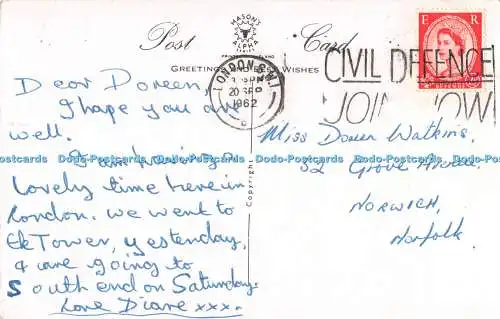 MASON'S
ALPHA
SERIES
Post Card
GREETINGS Wishes
LONDON S.W.1
20 SEP
1962
CIVIL DEFENCE
JOIN NOW
E R
Dear Doreen,
I hope you are
well.
I am having a
Lovely time here in
London. We went to
Tower, yesterday,
& are going to
South end on Saturday.
Love Diane xxx.
Miss Doreen Watkins,
32 Grove
NORWICH,
Norfolk
Copyright
Dodo-Postcards Dodo-Postcards Dodo-Postcards Dodo-Postcards Dodo-Postcards Dodo-Postcards Dodo-Postcards